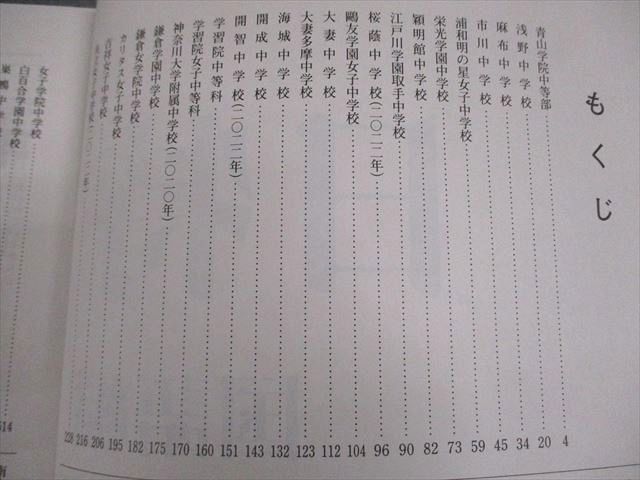 もくじ
青山学院中等部 4
浅野中学校 20
麻布中学校 34
市川中学校 45
浦和明の星女子中学校 59
栄光学園中学校 73
穎明館中学校 82
江戸川学園取手中学校 90
桜蔭中学校(二〇二二年) 96
鷗友学園女子中学校 104
大妻中学校 112
大妻多摩中学校 123
海城中学校 132
開成中学校 143
開智中学校(二〇二二年) 151
学習院中等科 160
学習院女子中等科 170
神奈川大学附属中学校(二〇二〇年) 175
鎌倉学園中学校 182
鎌倉女学院中学校 195
カリタス女子中学校 206
吉祥女子中学校 216
228
女子学院中学校
白百合学園中学校
巣鴨中学校
514